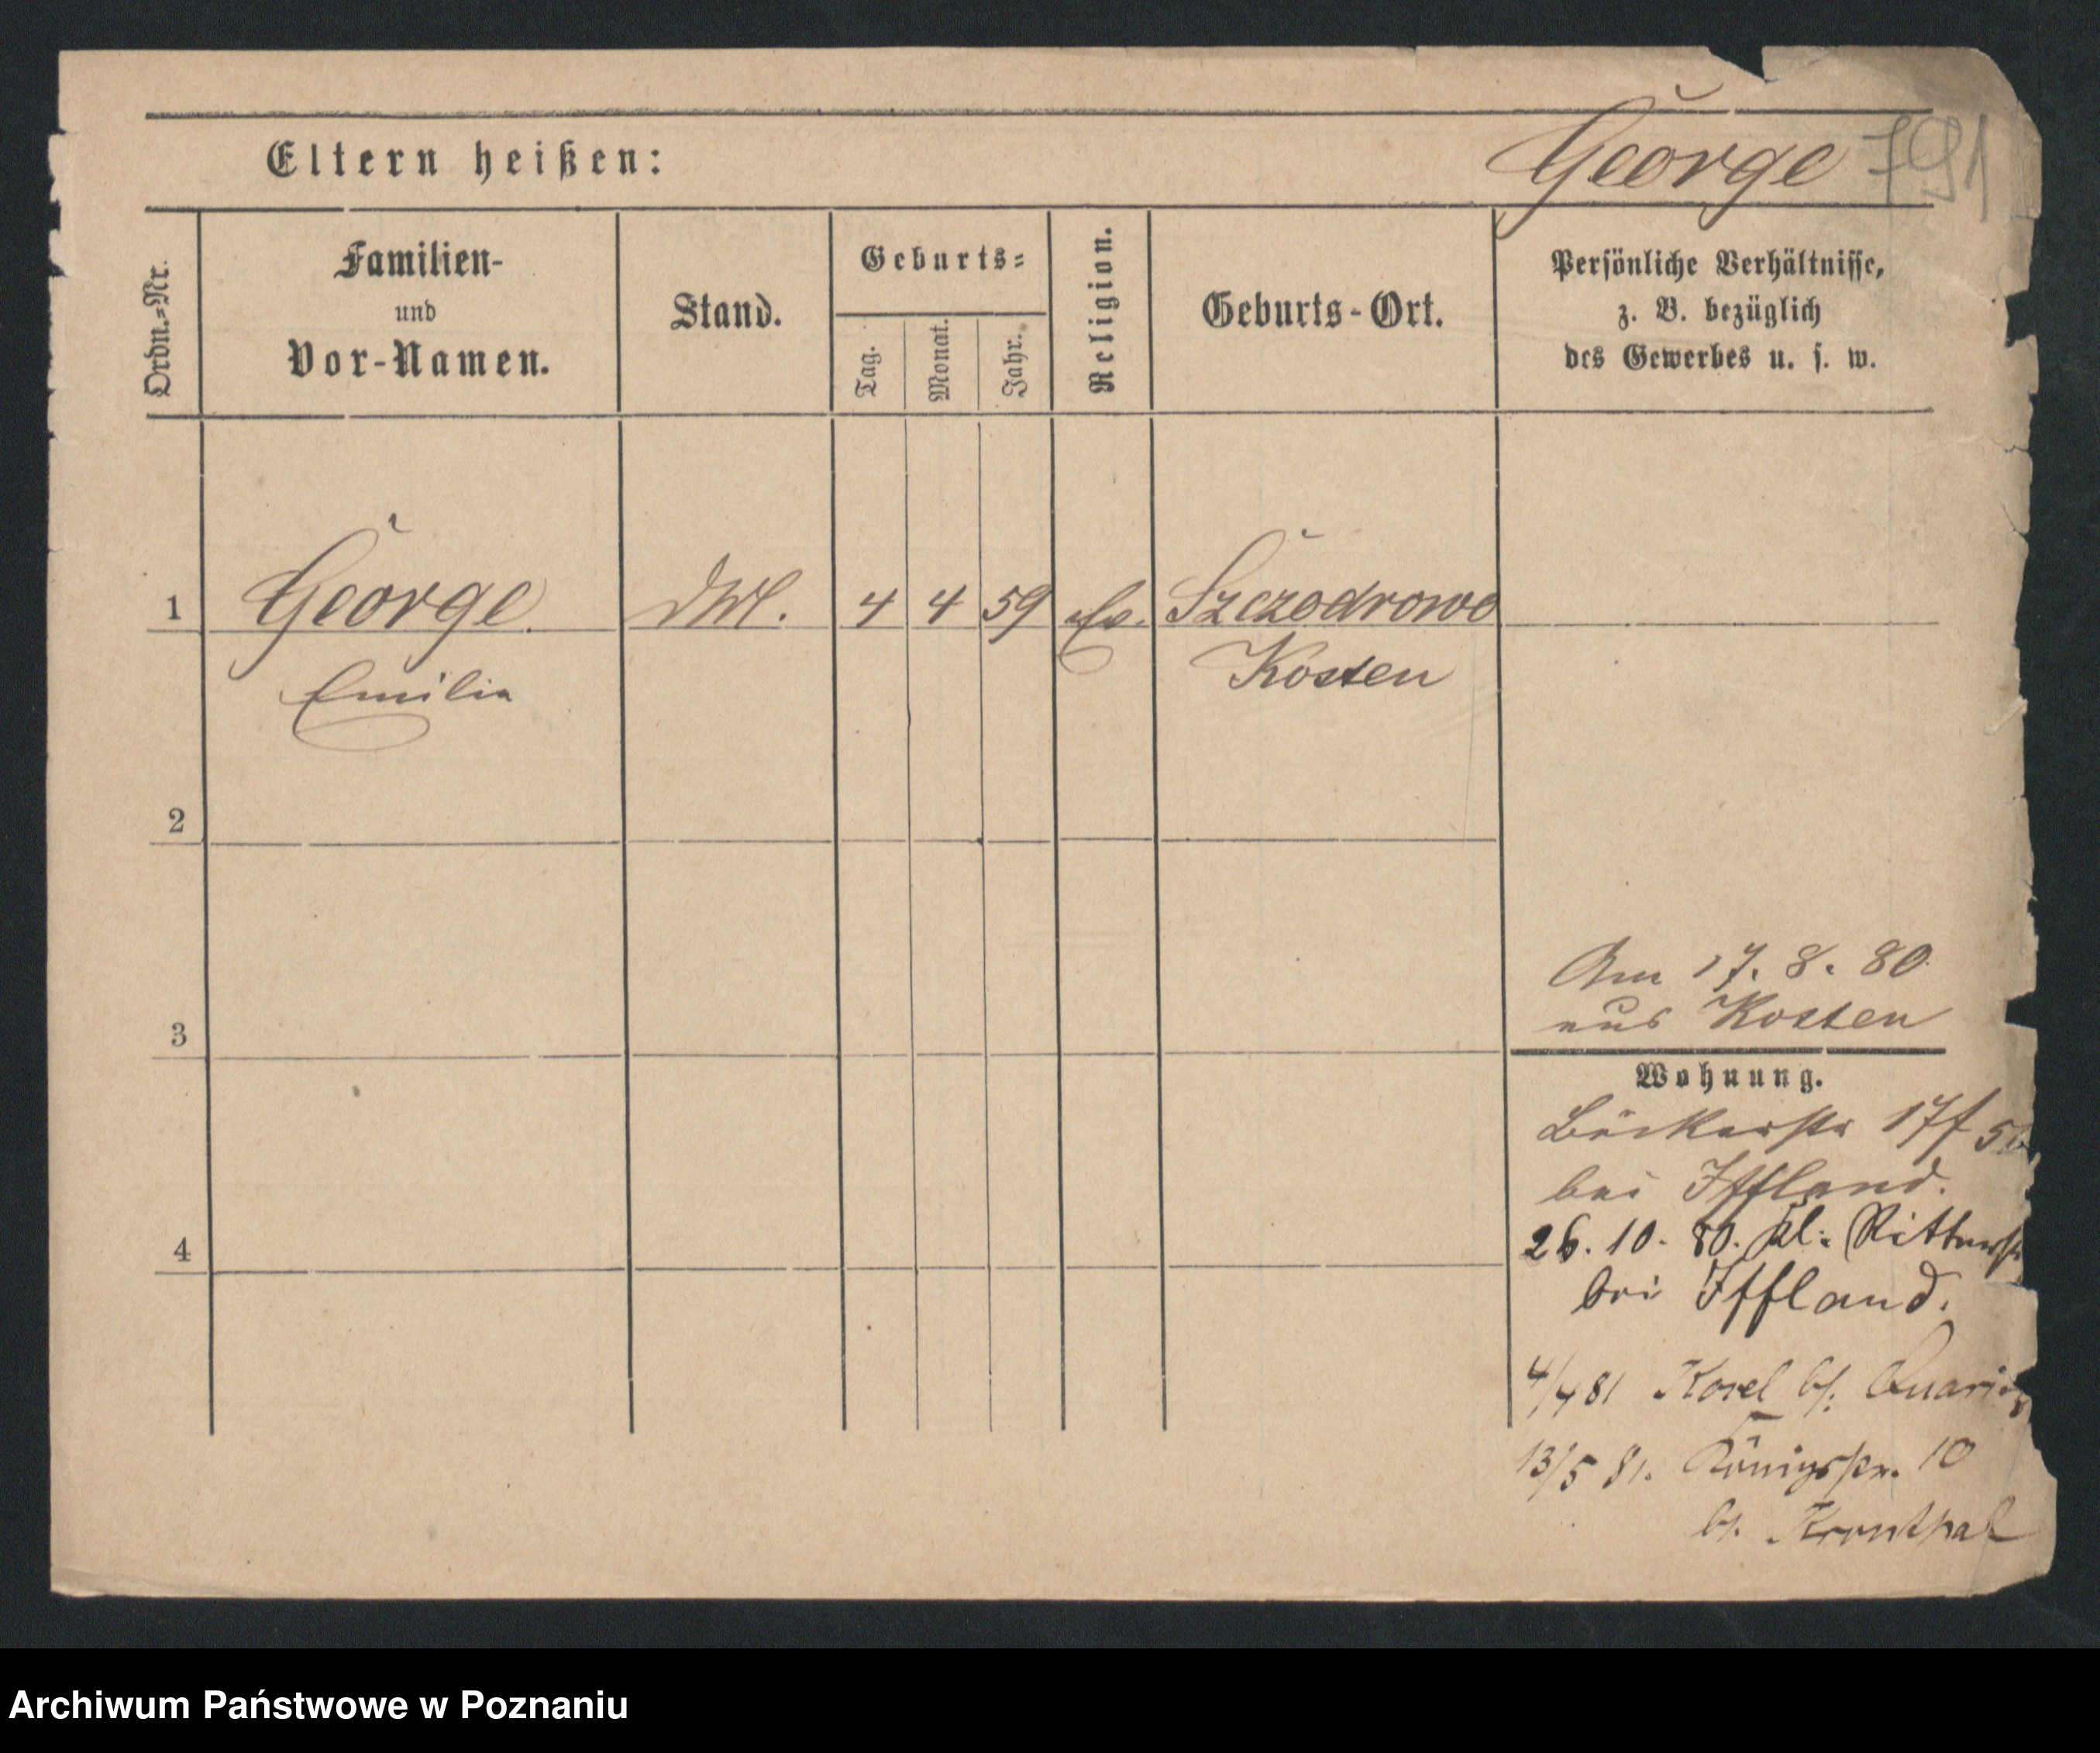 George 791
Eltern heißen:
Ordn.=Nr.
Familien-
und
Vor-Namen.
Stand.
Geburts=
Tag.
Monat.
Jahr.
Religion.
Geburts-Ort.
Persönliche Verhältnisse,
z. B. bezüglich
des Gewerbes u. s. w.
1 George 4 4 59 Ev. Szczodrowo
Emilia Kosten
2
3
4
Am 17. 8. 80
aus Kosten
Wohnung.
Bäckerstr 17f
bei Iffland.
26. 10. 80. Kl. Ritterstr
bei Iffland.
4/4 81 Kosel b/.
13/5 81. Königstr. 10
b/. Kronthal
Archiwum Państwowe w Poznaniu